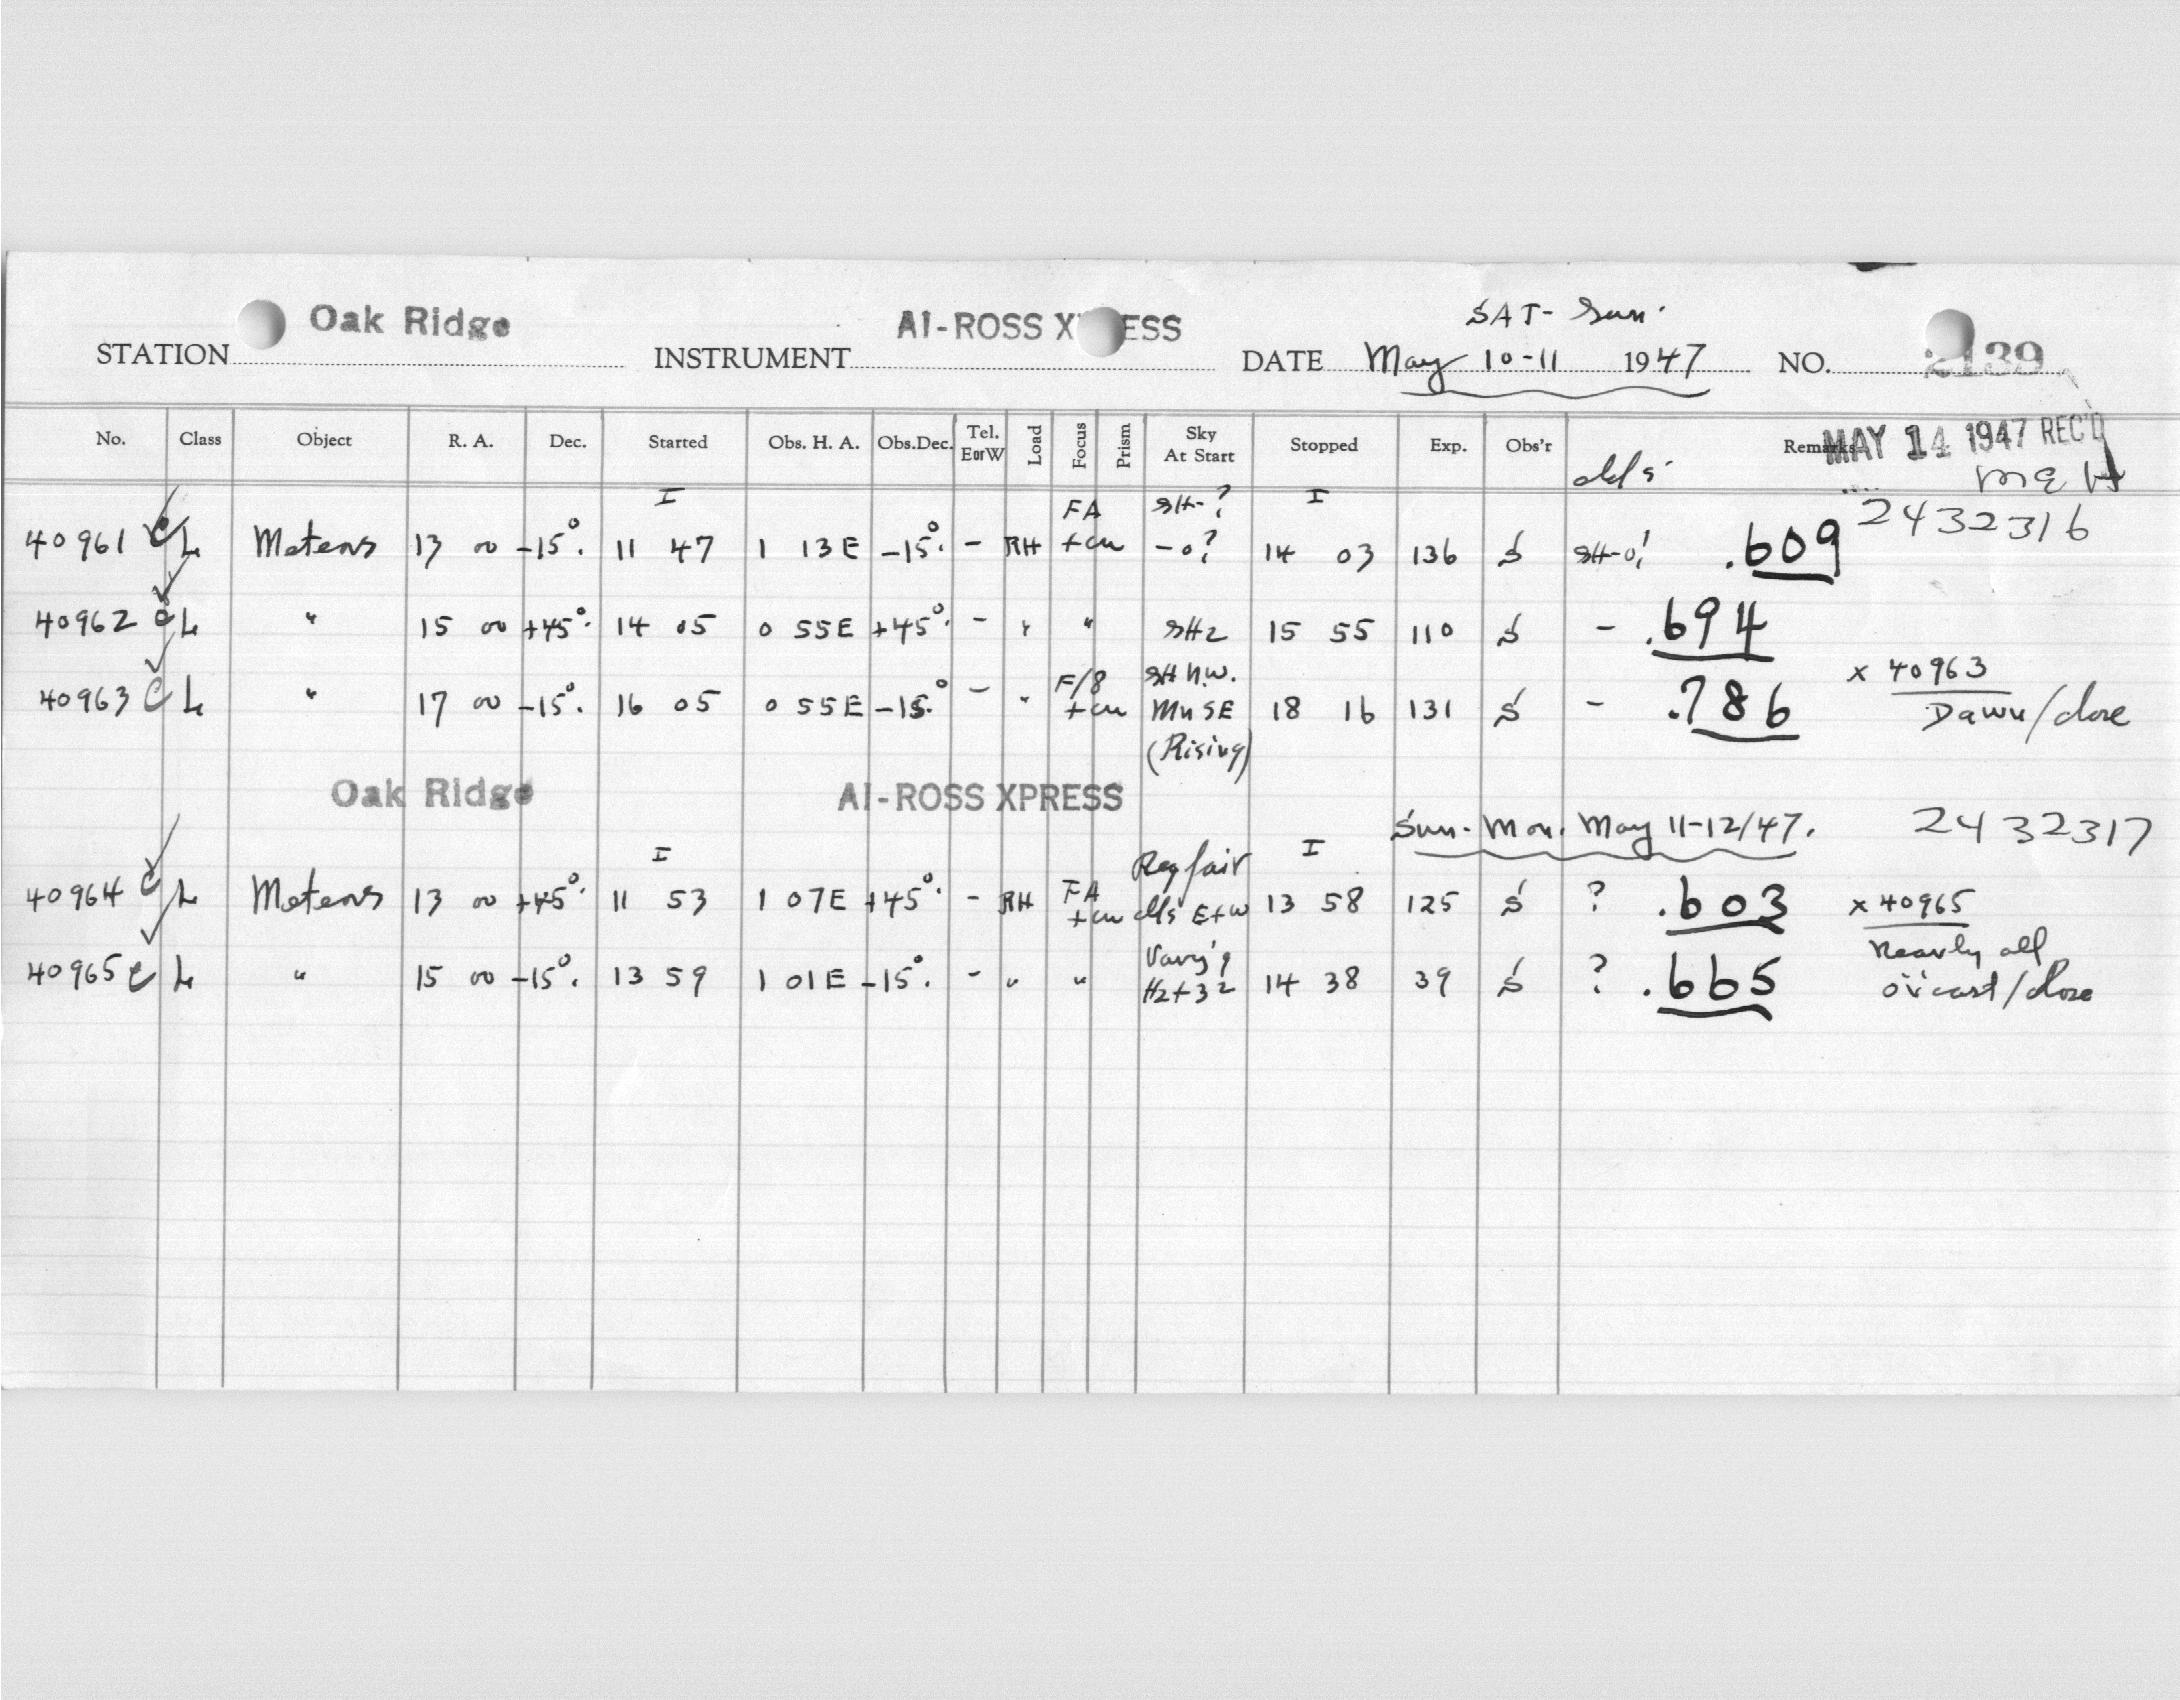 Oak Ridge AI-ROSS X ESS SAT- Sun.
STATION INSTRUMENT DATE May 10-11 1947 NO. 2139
No. Class Object R. A. Dec. Started Obs. H. A. Obs.Dec. Tel. EorW Load Focus Prism Sky At Start Stopped Exp. Obs'r Remarks
MAY 14 1947 REC'D
I FA SH-? I 2432316
40961 C L Meteors 13 00 -15°. 11 47 1 13E -15°. - RH +cu -0? 14 03 136 S SH-0! .609
40962 C L " 15 00 +45°. 14 05 0 55E +45°. - " " SH2 15 55 110 S - .694
F/8 SH N.W. x 40963
40963 C L " 17 00 -15°. 16 05 0 55E -15°. - " +cu Mn SE 18 16 131 S - .786 Dawn/close
(Rising)
Oak Ridge AI-ROSS XPRESS
Sun. Mon. May 11-12/47. 2432317
I Reg fair I
40964 C L Meteors 13 00 +45°. 11 53 1 07E +45°. - RH FA +cu E+W 13 58 125 S ? .603 x 40965
Vary'g Nearly all
40965 C L " 15 00 -15°. 13 59 1 01E -15°. - " " H2+3² 14 38 39 S ? .665 o'vcast/close